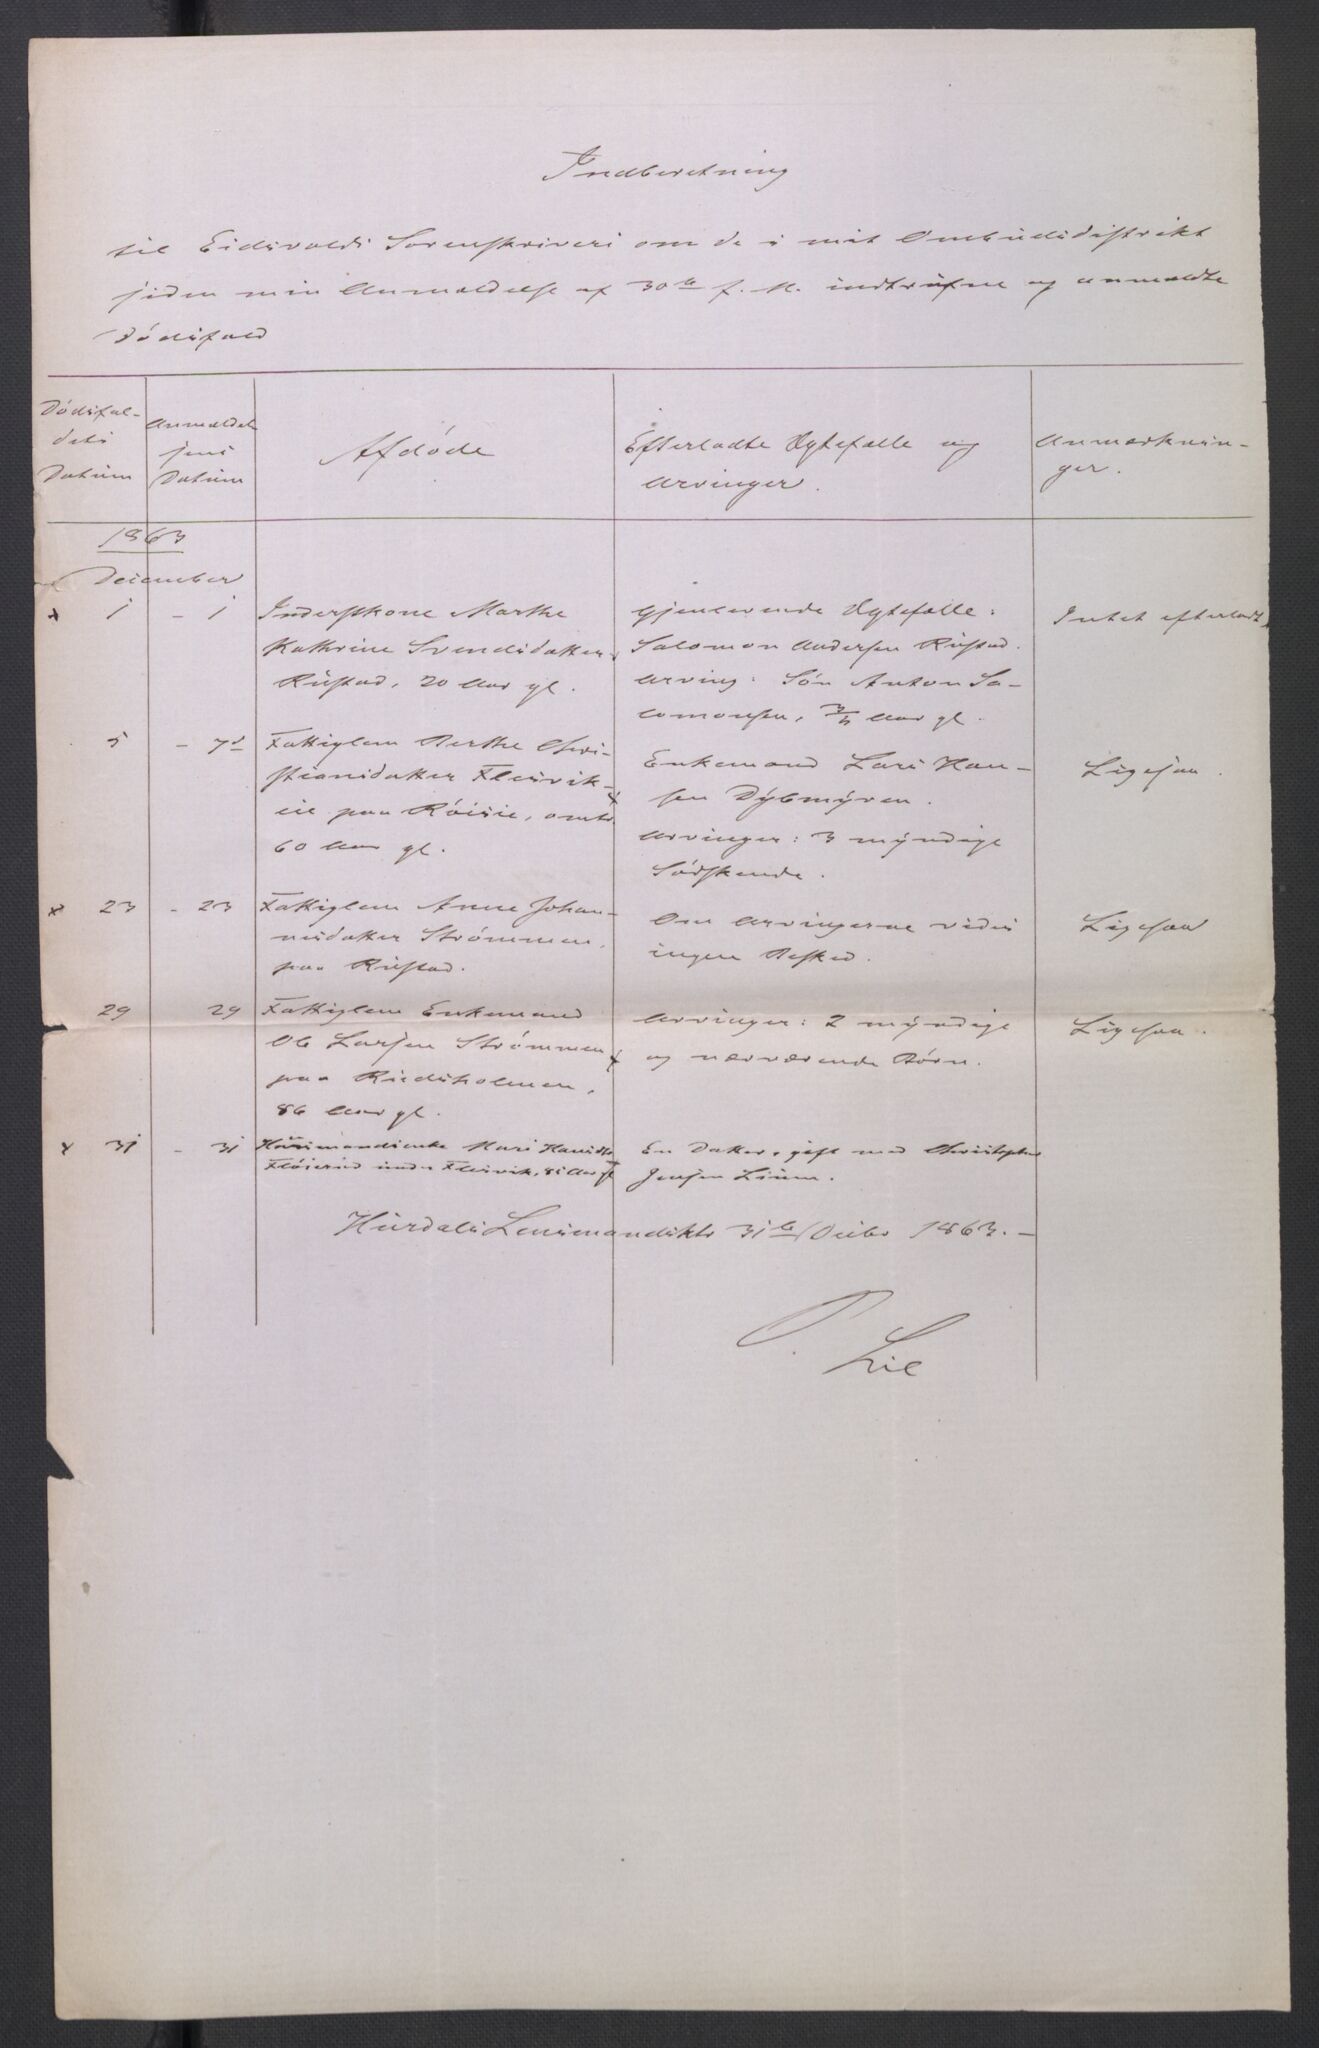 Indberetning
til Eidsvolds Sorenskriveri om de i mit Ombudsdistrikt
siden min Anmeldelse af 30te f. M. indtrufne og anmeldte
Dødsfald
Dødsfal-
dets
Datum
Anmeldel
sens
Datum
Afdøde
Efterladte Ægtefælle og
Arvinger.
Anmærknin-
ger.
1863
December
x 1 - 1 Inderstkone Marthe
Kathrine Svendsdatter
Rustad, 20 Aar gl.
Gjenlevende Ægtefælle:
Salomon Andersen Rustad.
Arving: Søn Anton Sa-
lomonsen, 3/4 Aar gl.
Intet efterladt
5 - 7d Fattiglem Berthe Chri-
stiansdatter Flesvik-
eie paa Røisie, omtr
60 Aar gl.
Enkemand Lars Han-
sen Dybmyren.
Arvinger: 3 myndige
Sødskende.
Ligesaa.
x 23 - 23 Fattiglem Anne Johan-
nesdatter Strømmen,
paa Rustad.
Om Arvingerne vides
ingen Besked.
Ligesaa
29 29 Fattiglem Enkemand
Ole Larsen Strømmen x
paa Rudsholmen,
86 Aar gl.
Arvinger: 2 myndige
og nærværende Børn.
Ligesaa.
x 31 - 31 Huusmandsenke Mari Hansdtr
Fløierud under Flesvik, 81 Aar gl
En Datter, gift med Christopher
Jensen Lium.
Hurdals Lensmandsktr 31te Decbr 1863. -
O. Lie